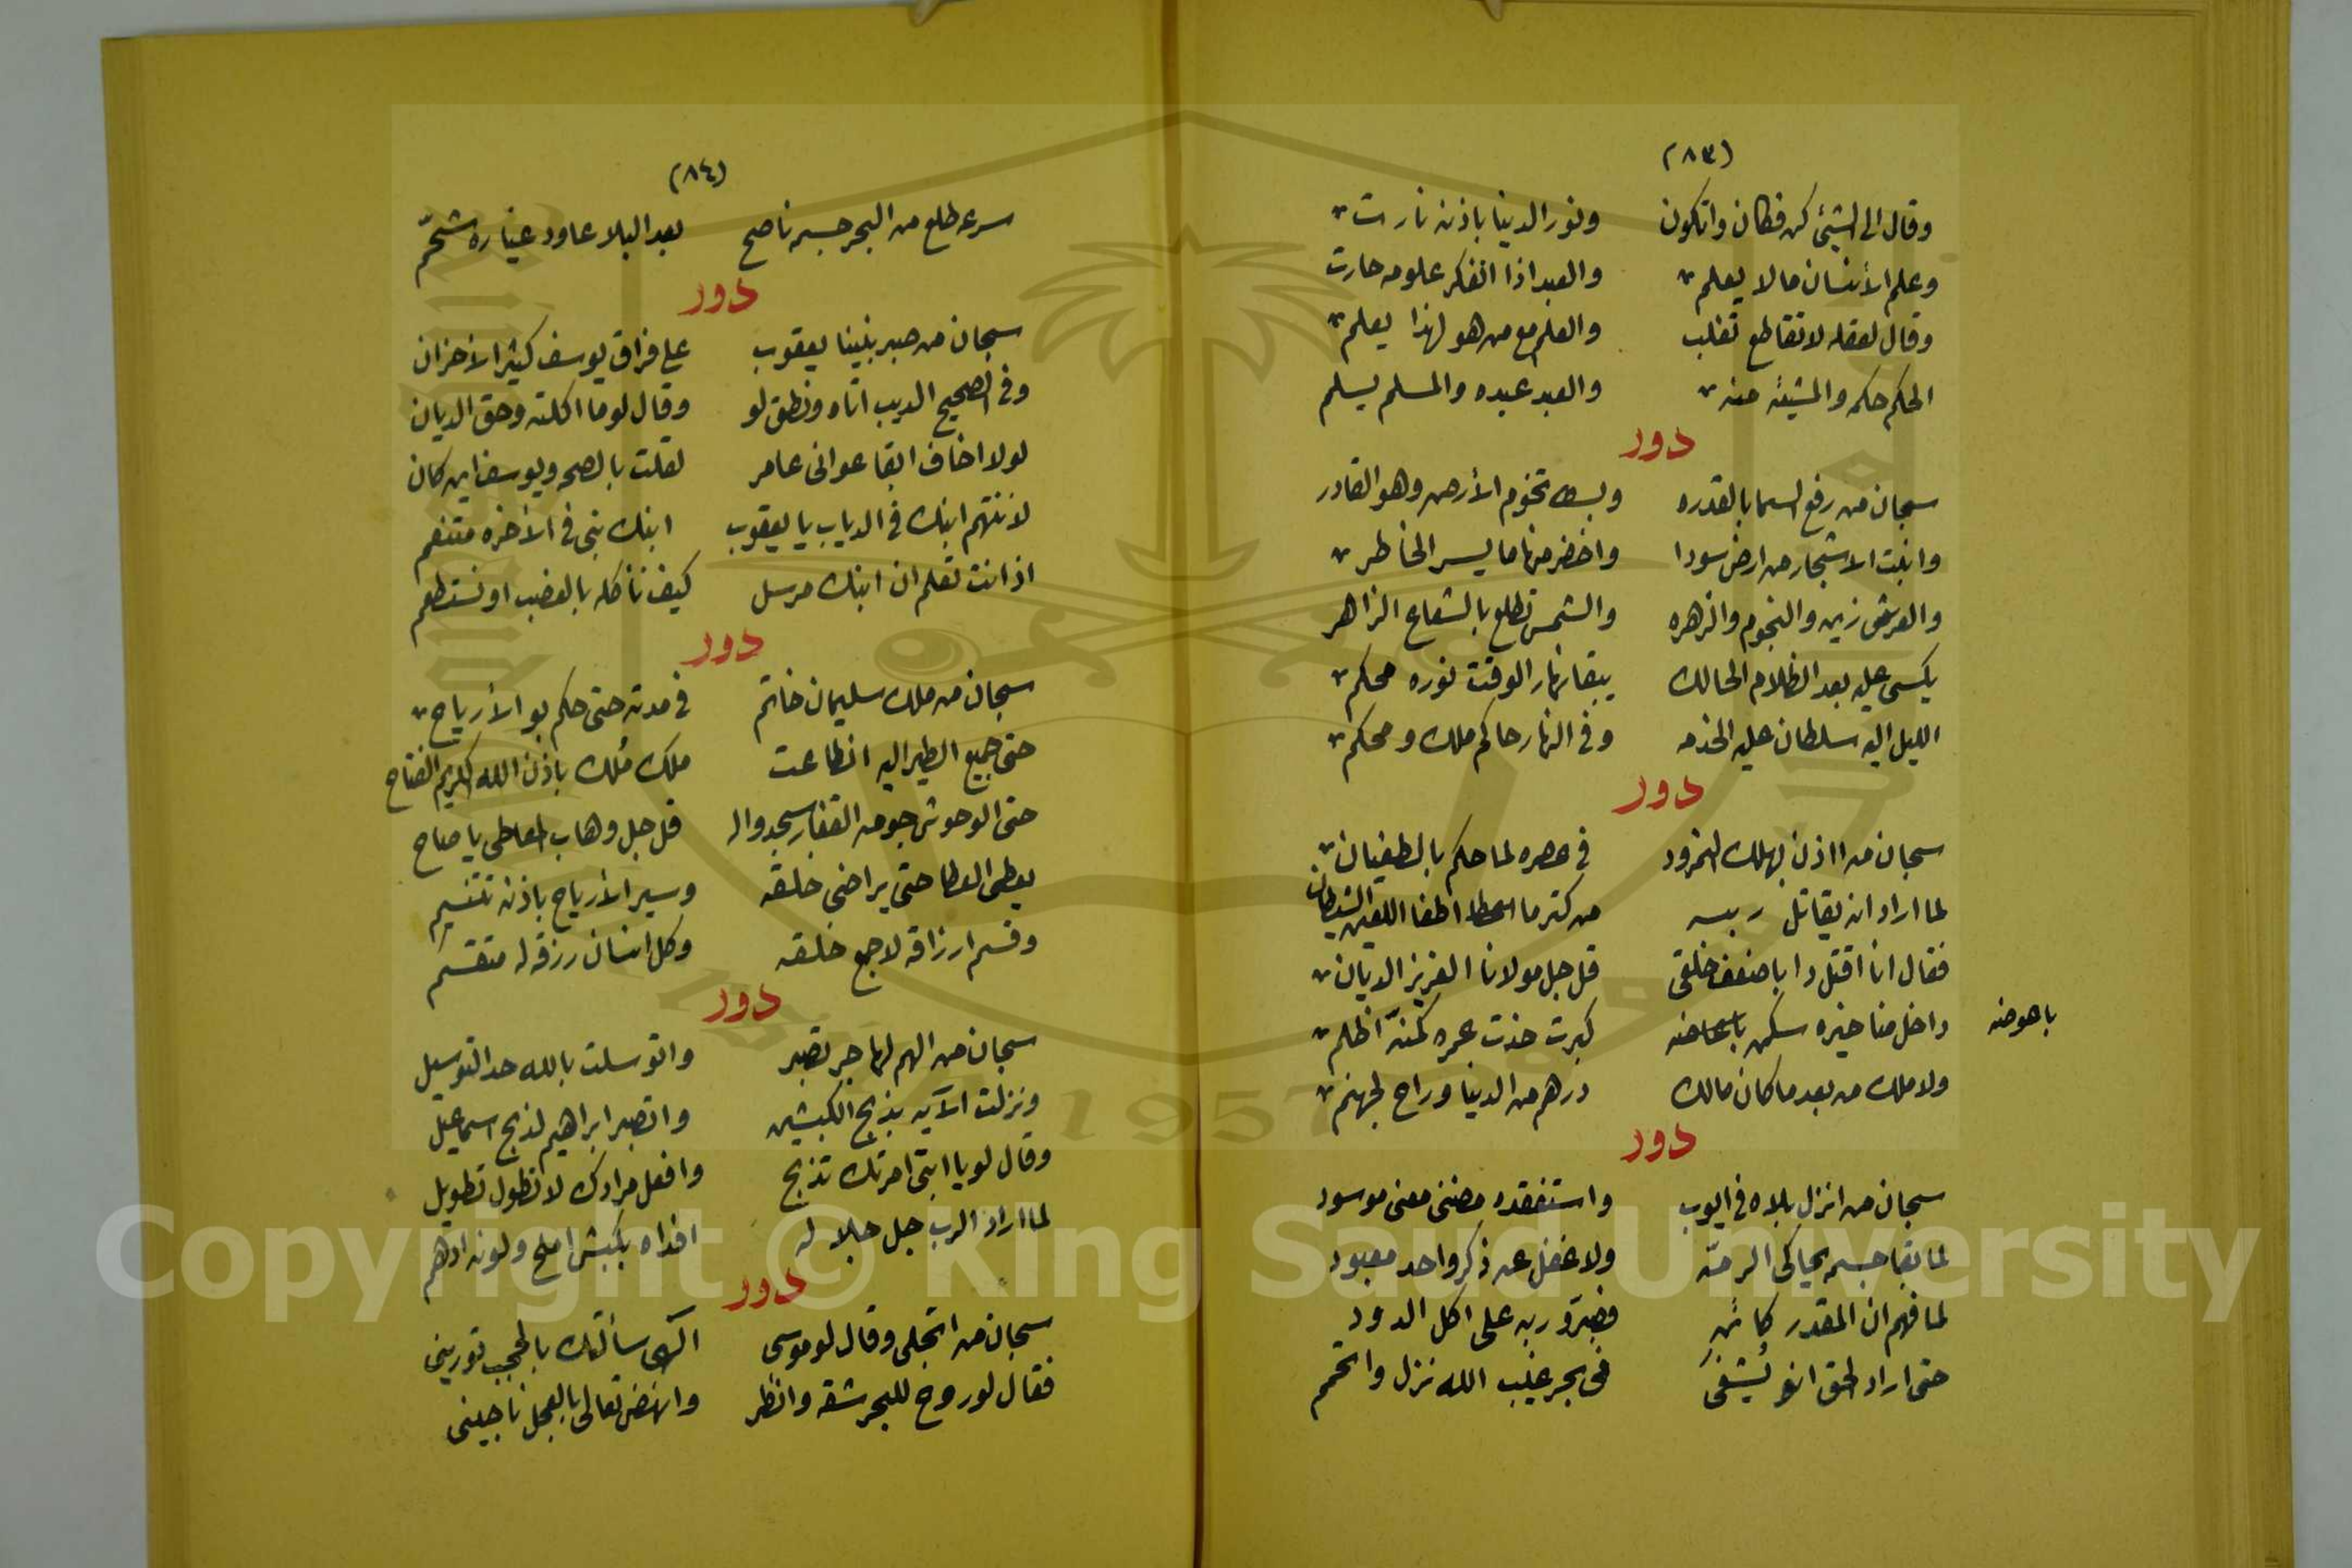 (٨٣)
وقال الى الشيئ كن فكان واتكون ونور الدينا باذنه نارت
وعلم الأنسان مالا يعلم والعبد اذا اتفكر علومه حارت
وقال لعقله لا تقاطع تغلب والعلم مع من هو لهذا يعلم
الحكم حكمه والمشيئه منه والعبد عبده والمسلم يسلم
دور
سبحان من رفع السما بالقدره وبسط تخوم الأرض وهو القادر
وانبت الاشجار من ارض سودا واخضر منها ما يسر الخاطر
والعرش زين والنجوم والزهره والشمس تطلع بالشعاع الزاهر
يكسى عليه بعد الظلام الحالك يبقا نهار الوقت نوره محكم
الليل اليه سلطان عليه الخدمه وفى النهار حاكم ملك ومحكم
دور
سبحان من ااذن بهلك النمرود فى عصره لما حكم بالطغيان
لما اراد ان يقاتل ربه من كتر ما اعطا اطغا اللعين الشيطان
فقال انا اقتل دا باضعف خلقى قل جل مولانا العزيز الديان
داخل مناخيره سكن باعاضه كبرت خدت عمره كمنه اظلم
باعوضه
ولا ملك من بعد ما كان مالك درهم من الدينا وراح لجهنم
دور
سبحان من انزل بلاه فى ايوب واستفقده مضنى معنى موسود
لما بقا جسمه يحاكى الرمه ولا غفل عن ذكر واحد معبود
لما فهم ان المقدر كائن فصبرو ربه على اكل الدود
حتى اراد الحق انو يشفى فى بحر غيب الله نزل واتحمم
(٨٤)
سرعه طلع من البحر جسمه ناصح بعد البلا عاود شحم
دور
سبحان من صبر نبينا يعقوب على فراق يوسف كثير الأحزان
وفى الصحيح الديب اتاه ونطق لو وقال لو ما اكلته وحق الديان
لولا اخاف ابقا عوانى عامر لقلت بالصحه ويوسف اين كان
لا تتهم ابنك فى الدياب يا يعقوب ابنك نبى فى الأخره متنعم
اذ انت تعلم ان ابنك مرسل كيف نأكله بالغضب او نستطعم
دور
سبحان من ملك سليمان خاتم فى مدته حتى حكم بو الأرياح
حتى جميع الطير اليه انطاعت ملك مُلك باذن الله الكريم الفتاح
حتى الوحوش جو من القفار سجدوا له قل جل وهاب العاطى يا صاح
يعطى العطا حتى يراضى خلقه وسير الأرياح باذنه تتنسيم
وقسم ارزاقه لاجمع خلقه وكل انسان رزقه له متقسم
دور
سبحان من الهم لهاجر تصبر واتوسلت بالله حد التوسيل
ونزلت الآيه بذبح الكبشين واتصبر ابراهيم لذبح اسماعيل
وقال لو يا ابتى امرتك تذبح وافعل مرادك لا تطول تطويل
لما اراد الرب جل جلاله افداه بكبش املح ولونه ادهم
دور
سبحان من اتجلى وقال لو موسى الهى سألتك بالحجب تورينى
فقال لو روح للبحر شقه وانظر وانهض تعالى بالعجل ناجينى
Copyright © King Saud University
1957